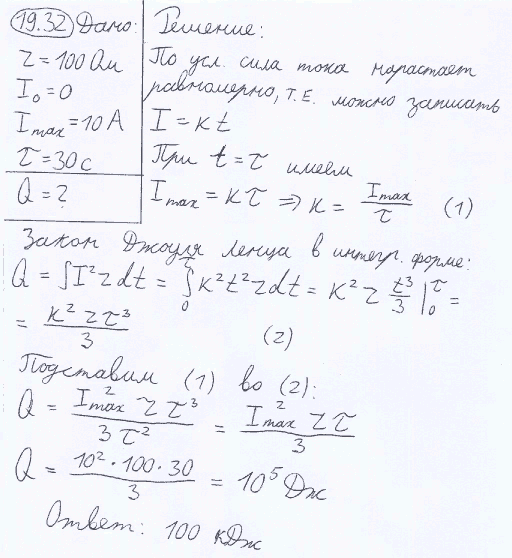 19.32 Дано: Решение:
r = 100 Ом
I₀ = 0
I_max = 10 А
τ = 30 с
Q = ?
По усл. сила тока нарастает
равномерно, т.е. можно записать
I = кt
При t = τ имеем
I_max = кτ ⇒ к = I_max/τ (1)
Закон Джоуля Ленца в интегр. форме:
Q = ∫I²rdt = ∫₀^τ к²t²rdt = к²r t³/3 |₀^τ =
= к²rτ³/3 (2)
Подставим (1) во (2):
Q = I²_max rτ³/3τ² = I²_max rτ/3
Q = 10²·100·30/3 = 10⁵ Дж
Ответ: 100 кДж